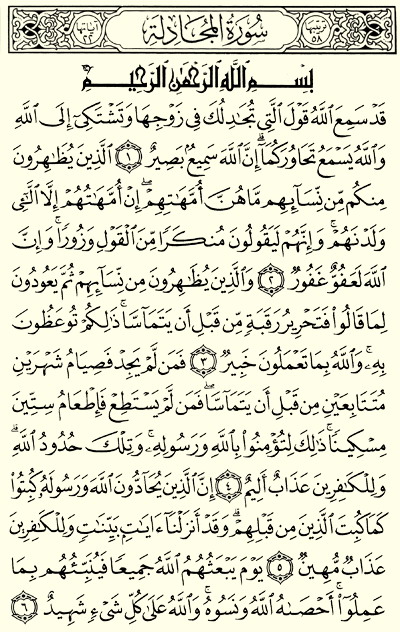 ترتيبها ٥٨ سُورَةُ المُجَادلة آياتها ٢٢
بِسْمِ اللَّهِ الرَّحْمَٰنِ الرَّحِيمِ
قَدْ سَمِعَ اللَّهُ قَوْلَ الَّتِي تُجَادِلُكَ فِي زَوْجِهَا وَتَشْتَكِي إِلَى اللَّهِ
وَاللَّهُ يَسْمَعُ تَحَاوُرَكُمَا ۚ إِنَّ اللَّهَ سَمِيعٌ بَصِيرٌ ﴿١﴾ الَّذِينَ يُظَاهِرُونَ
مِنكُم مِّن نِّسَائِهِم مَّا هُنَّ أُمَّهَاتِهِمْ ۖ إِنْ أُمَّهَاتُهُمْ إِلَّا اللَّائِي
وَلَدْنَهُمْ ۚ وَإِنَّهُمْ لَيَقُولُونَ مُنكَرًا مِّنَ الْقَوْلِ وَزُورًا ۚ وَإِنَّ
اللَّهَ لَعَفُوٌّ غَفُورٌ ﴿٢﴾ وَالَّذِينَ يُظَاهِرُونَ مِن نِّسَائِهِمْ ثُمَّ يَعُودُونَ
لِمَا قَالُوا فَتَحْرِيرُ رَقَبَةٍ مِّن قَبْلِ أَن يَتَمَاسَّا ۚ ذَٰلِكُمْ تُوعَظُونَ
بِهِ ۚ وَاللَّهُ بِمَا تَعْمَلُونَ خَبِيرٌ ﴿٣﴾ فَمَن لَّمْ يَجِدْ فَصِيَامُ شَهْرَيْنِ
مُتَتَابِعَيْنِ مِن قَبْلِ أَن يَتَمَاسَّا ۖ فَمَن لَّمْ يَسْتَطِعْ فَإِطْعَامُ سِتِّينَ
مِسْكِينًا ۚ ذَٰلِكَ لِتُؤْمِنُوا بِاللَّهِ وَرَسُولِهِ ۚ وَتِلْكَ حُدُودُ اللَّهِ ۗ
وَلِلْكَافِرِينَ عَذَابٌ أَلِيمٌ ﴿٤﴾ إِنَّ الَّذِينَ يُحَادُّونَ اللَّهَ وَرَسُولَهُ كُبِتُوا
كَمَا كُبِتَ الَّذِينَ مِن قَبْلِهِمْ ۚ وَقَدْ أَنزَلْنَا آيَاتٍ بَيِّنَاتٍ ۚ وَلِلْكَافِرِينَ
عَذَابٌ مُّهِينٌ ﴿٥﴾ يَوْمَ يَبْعَثُهُمُ اللَّهُ جَمِيعًا فَيُنَبِّئُهُم بِمَا
عَمِلُوا ۚ أَحْصَاهُ اللَّهُ وَنَسُوهُ ۚ وَاللَّهُ عَلَىٰ كُلِّ شَيْءٍ شَهِيدٌ ﴿٦﴾